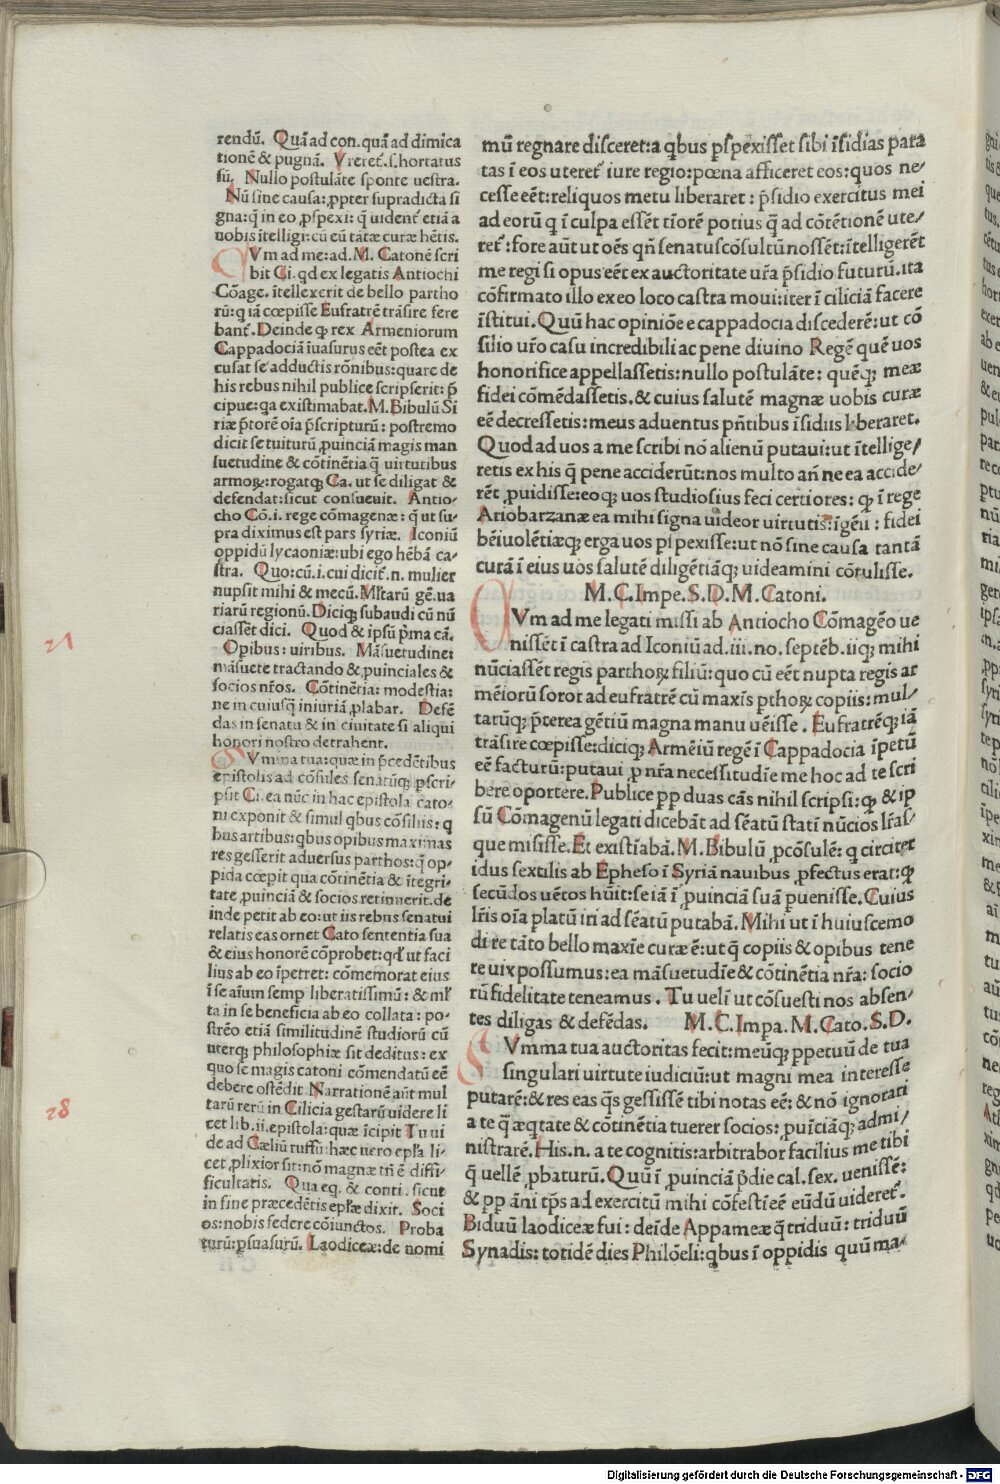 rendũ. Quã ad con. quã ad dimica
tionẽ & pugnã. Vreret̃. s. hortatus
sũ. Nullo postulãte sponte uestra.
Nũ sine causa: ꝓpter supradicta si
gna: q̃ in eo ꝓspexi: q̃ uident̃ etiã a
nobis ĩtelligi: cũ eũ tãtæ curæ hẽtis.
CVm ad me: ad. M. Catonẽ scri
bit Ci. qd ex legatis Antiochi
Cõage. ĩtellexerit de bello partho
rũ: q iã cœpisse Eufratrẽ trãsire fere
bant̃. Deinde ꝙ rex Armeniorum
Cappadociã ĩuasurus eẽt postea ex
cusat se adductis rõnibus: quare de
his rebus nihil publice scripserit: p̃
cipue: qa existimabat. M. Bibulũ Si
riæ p̃torẽ oĩa p̃scripturũ: postremo
dicit se tuiturũ ꝓuinciã magis man
suetudine & cõtinẽtia q̃ uirtutibus
armoꝝ: rogatꝙ Ca. ut se diligat &
defendat: sicut consueuit. Antio-
cho Cõ. i. rege cõmagenæ: q̃ ut su-
pra diximus est pars syriæ. Iconiũ
oppidũ lycaoniæ: ubi ego hẽbã ca-
stra. Quo: cũ. i. cui dicit̃. n. mulier
nupsit mihi & mecũ. Mltarũ gẽ. ua
riarũ regionũ. Diciꝗ subaudi cũ nũ
ciassẽt dici. Quod & ipsũ p̃ma cã.
Opibus: uiribus. Mãsuetudine:
mãsuete tractando & ꝓuinciales &
socios nr̃os. Cõtinẽtia: modestia:
ne in cuiusq̃ iniuriã ꝓlabar. Defẽ
das in senatu & in ciuitate si aliqui
honori nostro detrahent.
SVmma tua: quæ in p̃cedẽtibus
epistolis ad cõsules senatũꝗ ꝓscri-
psit Ci. ea nũc in hac epistola cato-
ni exponit & simul qbus cõsiliis: q
bus artibus: qbus opibus maximas
res gesserit aduersus parthos: q̃ op-
pida cœpit qua cõtinẽtia & ĩtegri-
tate ꝓuinciã & socios retinuerit. de
inde petit ab eo: ut iis rebus senatui
relatis eas ornet Cato sententia sua
& eius honorẽ cõprobet: qd̃ ut faci
lius ab eo ĩpetret: cõmemorat eius
ĩ se aĩum semp liberatissimũ: & ml̃
ta in se beneficia ab eo collata: po-
strẽo etiã similitudinẽ studiorũ cũ
uterꝗ philosophiæ sit deditus: ex
quo se magis catoni cõmendatũ eẽ
debere ostẽdit. Narrationẽ aũt mul
tarũ rerũ in Cilicia gestarũ uidere li
cet lib. ii. epistola: quæ ĩcipit Tu ui
de ad Cæliũ ruffũ: hæc uero epl̃a li-
cet ꝓlixior sit: nõ magnæ tñ ẽ diffi-
ficultatis. Qua eq. & conti. sicut
in fine præcedẽtis epl̃æ dixit. Soci
os: nobis federe cõiunctos. Proba
turũ: ꝑsuasurũ. Laodiceæ: de nomi
mũ regnare disceret: a qbus ꝑspexisset sibi ĩsidias para
tas ĩ eos uteret̃ iure regio: pœna afficeret eos: quos ne-
cesse eẽt: reliquos metu liberaret: p̃sidio exercitus mei
ad eorũ q ĩ culpa essẽt tĩorẽ potius q̃ ad cõtẽtionẽ ute-
ret̃: fore aũt ut oẽs qñ senatuscõsultũ nossẽt: ĩtelligerẽt
me regi si opus eẽt ex auctoritate ur̃a p̃sidio futurũ. ita
cõfirmato illo ex eo loco castra moui: iter ĩ ciliciã facere
ĩstitui. Quũ hac opiniõe e cappadocia discederẽ: ut cõ
silio ur̃o casu incredibili ac pene diuino Regẽ quẽ uos
honorifice appellassetis: nullo postulãte: quẽꝗ meæ
fidei cõmẽdassetis. & cuius salutẽ magnæ uobis curæ
eẽ decressetis: meus aduentus pñtibus ĩsidiis liberaret.
Quod ad uos a me scribi nõ alienũ putaui: ut ĩtellige-
retis ex his q̃ pene acciderũt: nos multo añ ne ea accide-
rẽt ꝓuidisse: eoꝗ uos studiosius feci certiores: ꝙ ĩ rege
Ariobarzanæ ea mihi signa uideor uirtutis: ĩgẽii: fidei
bẽiuolẽtiæꝗ erga uos ꝑspexisse: ut nõ sine causa tantã
curã ĩ eius uos salutẽ diligẽtiãꝗ uideamini cõtulisse.
M. C. Impe. S. D. M. Catoni.
CVm ad me legati missi ab Antiocho Cõmagẽo ue
nissẽt ĩ castra ad Iconiũ ad. iii. no. septẽb. iiꝗ mihi
nũciassẽt regis parthoꝝ filiũ: quo cũ eẽt nupta regis ar
mẽiorũ soror ad eufratrẽ cũ maxĩs pthoꝝ copiis: mul-
tarũꝗ p̃terea gẽtiũ magna manu uẽisse. Eufratrẽꝗ iã
trãsire cœpisse: diciꝗ Armẽiũ regẽ ĩ Cappadocia ĩpetũ
eẽ facturũ: putaui ꝓ nr̃a necessitudĩe me hoc ad te scri
bere oportere. Publice pp duas cãs nihil scripsi: ꝙ & ip
sũ Cõmagenũ legati dicebãt ad sẽatũ statĩ nũcios lr̃as-
que misisse. Et existĩabã. M. Bibulũ ꝓcõsulẽ: q circiter
idus sextilis ab Epheso ĩ Syriã nauibus ꝓfectus erat: ꝙ
secũdos uẽtos hũit: se iã ĩ ꝓuinciã suã puenisse. Cuius
lr̃is oĩa platũ iri ad sẽatũ putabã. Mihi ut ĩ huiuscemo
di re tãto bello maxĩe curæ ẽ: ut q̃ copiis & opibus tene
re uix possumus: ea mãsuetudĩe & cõtinẽtia nr̃a: socio
rũ fidelitate teneamus. Tu uelĩ ut cõsuesti nos absen-
tes diligas & defẽdas. M. C. Impa. M. Cato. S. D.
SVmma tua auctoritas fecit: meũꝗ ppetuũ de tua
singulari uirtute iudiciũ: ut magni mea interesse
putarẽ: & res eas q̃s gessissẽ tibi notas eẽ: & nõ ignorari
a te q̃ æqtate & cõtinẽtia tuerer socios: ꝓuĩciãꝗ admi-
nistrarẽ. His. n. a te cognitis: arbitrabor facilius me tibi
q̃ uellẽ ꝓbaturũ. Quũ ĩ ꝓuinciã p̃die cal. sex. uenissẽ:
& pp ãni tp̃s ad exercitũ mihi cõfesti eẽ eũdũ uideret̃.
Biduũ laodiceæ fui: deĩde Appameæ q̃triduũ: triduũ
Synadis: totidẽ dies Philõeli: qbus ĩ oppidis quũ ma-
21
28
Digitalisierung gefördert durch die Deutsche Forschungsgemeinschaft - DFG